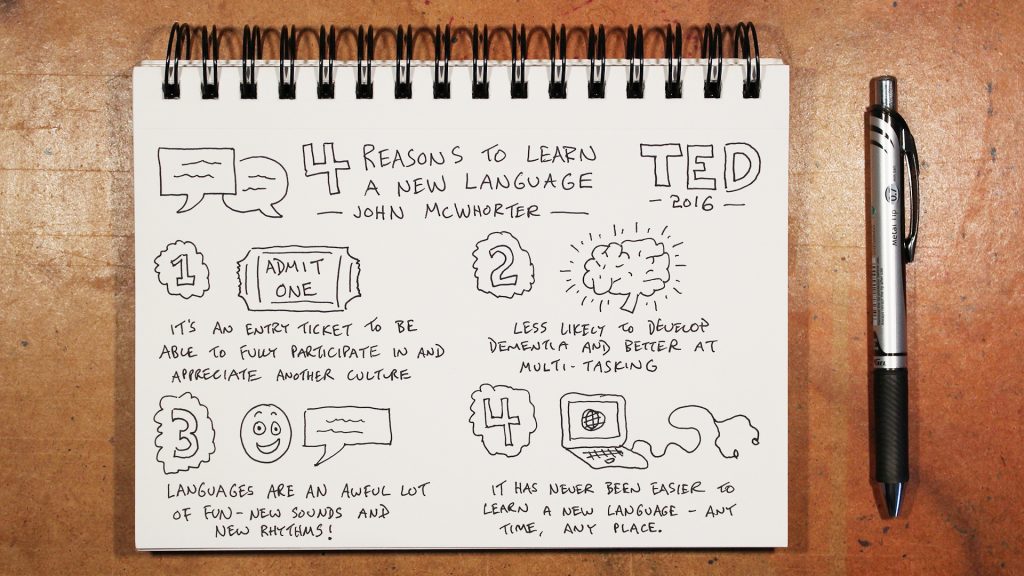 4 REASONS TO LEARN
A NEW LANGUAGE
— JOHN McWHORTER —
TED
- 2016 -
1
ADMIT
ONE
IT'S AN ENTRY TICKET TO BE
ABLE TO FULLY PARTICIPATE IN AND
APPRECIATE ANOTHER CULTURE
2
LESS LIKELY TO DEVELOP
DEMENTIA AND BETTER AT
MULTI-TASKING
3
LANGUAGES ARE AN AWFUL LOT
OF FUN - NEW SOUNDS AND
NEW RHYTHMS!
4
IT HAS NEVER BEEN EASIER TO
LEARN A NEW LANGUAGE - ANY
TIME, ANY PLACE.
Metal Tip
0.7